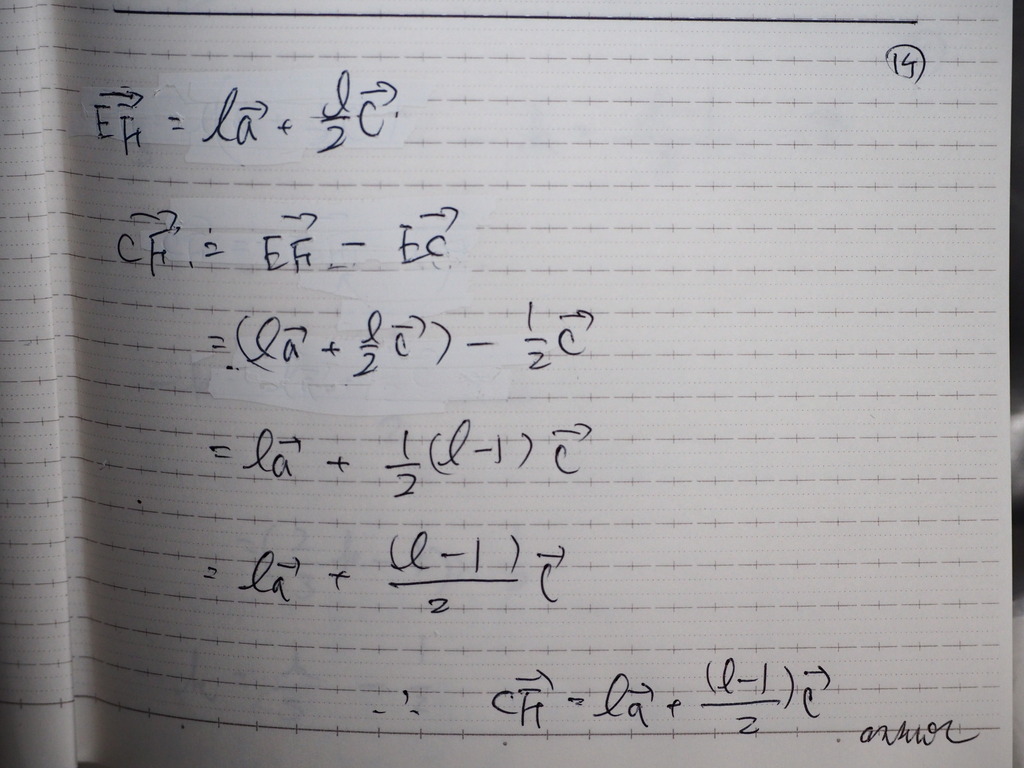 ⑭
EH⃗ = la⃗ + l/2 c⃗
CH⃗ = EH⃗ − EC⃗
= (la⃗ + l/2 c⃗) − 1/2 c⃗
= la⃗ + 1/2 (l−1) c⃗
= la⃗ + (l−1)/2 c⃗
∴ CH⃗ = la⃗ + (l−1)/2 c⃗